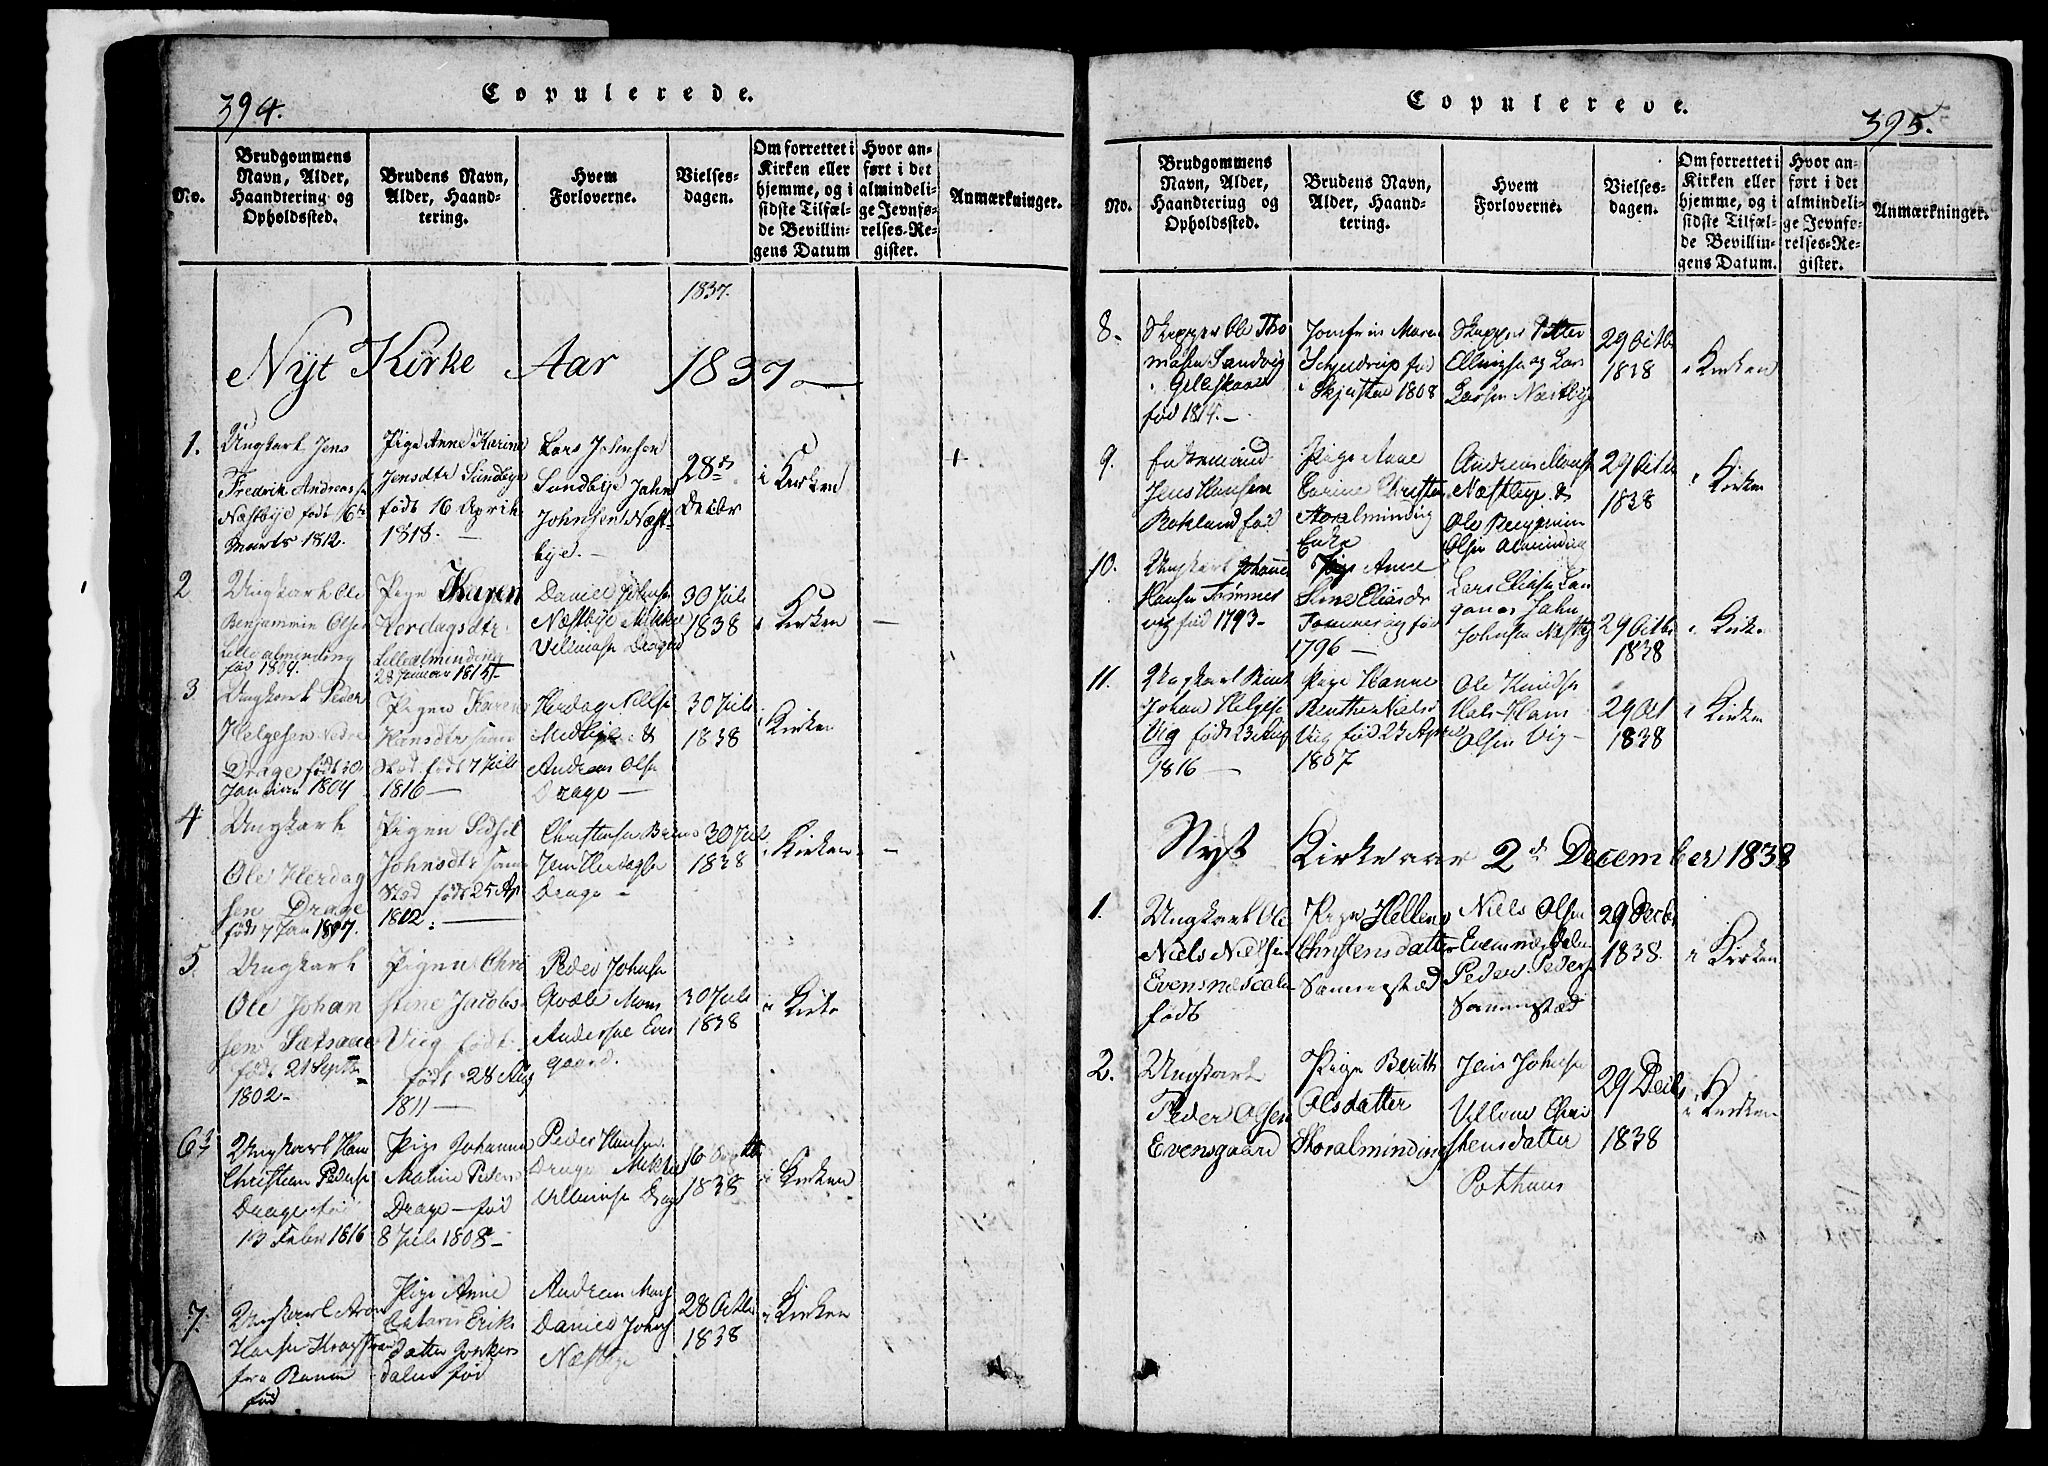 394.
Copulerede.
No.
Brudgommens
Navn, Alder,
Haandtering og
Opholdssted.
Brudens Navn,
Alder, Haand-
tering.
Hvem
Forloverne.
Vielses-
dagen.
Om forrettet i
Kirken eller
hjemme, og i
sidste Tilfæl-
de Bevillin-
gens Datum
Hvor an-
ført i det
almindeli-
ge Jevnfø-
relses-Re-
gister.
Anmærkninger.
1837.
Nyt Kirke Aar 1837
1.
Ungkarl Jens
Fredrik Andreas
Næstbye født 6te
Marts 1812.
Pige Anne Karine
Jensdtr Sundbye
født 16 April
1818.
Lars Johnsen
Sundbye Jahn
Johnsen Næst-
bye.
28de
Decbr
i Kirken
2
Ungkarl Ole
Benjammin Olsen
Lillealminding
fød 1809.
Pige Karen
Herdagsdtr
Lillealminding
28 Januar 1815
Daniel Johnse
Næstbye Mikkel
Villumse Drage
30 Juli
1838
i Kirken
3
Ungkarl Peder
Helgesen Nedre
Drage født 30
Januar 1809
Pigen Karen
Hansdtr samme
Stæd født 7 Juli
1816
Herdag Nilse
&
Andreas Olse
Drage
30 Juli
1838
i Kirken
4
Ungkarl
Ole Herdag
sen Drage
født 7 Jan 1807.
Pigen Sidsel
Johnsdtr samme
Stæd født 25 Ap
1812.
Christense
Jens Herdagse
Drage
30 Juli
1838
i Kirken
5
Ungkarl
Ole Johan
sen
født 21 Septbr
1802
Pigen Chri
stine Jacobs
Viig født
født 28 Aug
1811
Peder Johnse
Qvæle Mons
Anderse Evens
gaard.
30 Juli
1838
i Kirke
6
Ungkarl Hans
Christian Pederse
Drage fød
13 Febr 1816
Pige Johanna
Maline Peders
Drage fød
8 Juli 1808
Peder Hansen
Drage Mikkel
Villumse Drage
1838
i Kirken
7.
Ungkarl
Hansen
fra Ranen
fød
Pige Anne
Erik
datter Junkers
dalen fød
Andreas Mons
Daniel Johns
Næstbye
28 Octbr
1838
i Kirken
Copulerede.
395.
No.
Brudgommens
Navn, Alder,
Haandtering og
Opholdssted.
Brudens Navn,
Alder, Haand-
tering.
Hvem
Forloverne.
Vielses-
dagen.
Om forrettet i
Kirken eller
hjemme, og i
sidste Tilfæl-
de Bevillin-
gens Datum.
Hvor an-
ført i det
almindeli-
ge Jevnfø-
relses-Re-
gister.
Anmærkninger.
8.
Skipper Ole Tho
masen Sandvig
i Gilleskaal
fød 1814.
Jomfrue Maren
Schjelderup fød
i Skjerstad 1808
Skipper Petter
Ellingse og Lars
Larsen Næstbye
29 Octbr
1838
i Kirken
9.
Enkemand
Jens Hansen
Rokland fød
Pige Anne
Carine Christen
Storalminding
Enke
Andreas Mons
Næstbye &
Ole Benjamin
Olsen Alminding
29 Octbr
1838
i Kirken
10.
Ungkarl Johannes
Hansen
vig fød 1793
Pige Anne
Stine Eliasdr
fød
1796
Lars Eliasen Lan
ganes Jahn
Johnsen Næstby
29 Octbr
1838
i Kirke
11.
Ungkarl Bent
Johan Helgese
Vig født 23 Aug
1816
Pige Hanne
Benthe Niels
Viig fød 23 April
1807
Ole Knudse
Hals Hans
Olsen Vig
29 Oct
1838
i Kirken
Nyt Kirkeaar 2d December 1838
1.
Ungkarl Ole
Niels Nielsen
Evensnæsdalen
født
Pige Hellene
Christensdatter
Sommerstæd
Niels Olsen
Evensnæsdalen
Peder Peders
Sommerstæd
29 Decbr
1838.
i Kirken
2.
Ungkarl
Peder Olsen
Evensgaard
Pige Berith
Olsdatter
Storalminding
Jens Johnse
Villum Chri
stensdatter
Pothuus
29 Decbr
1838
i Kirken